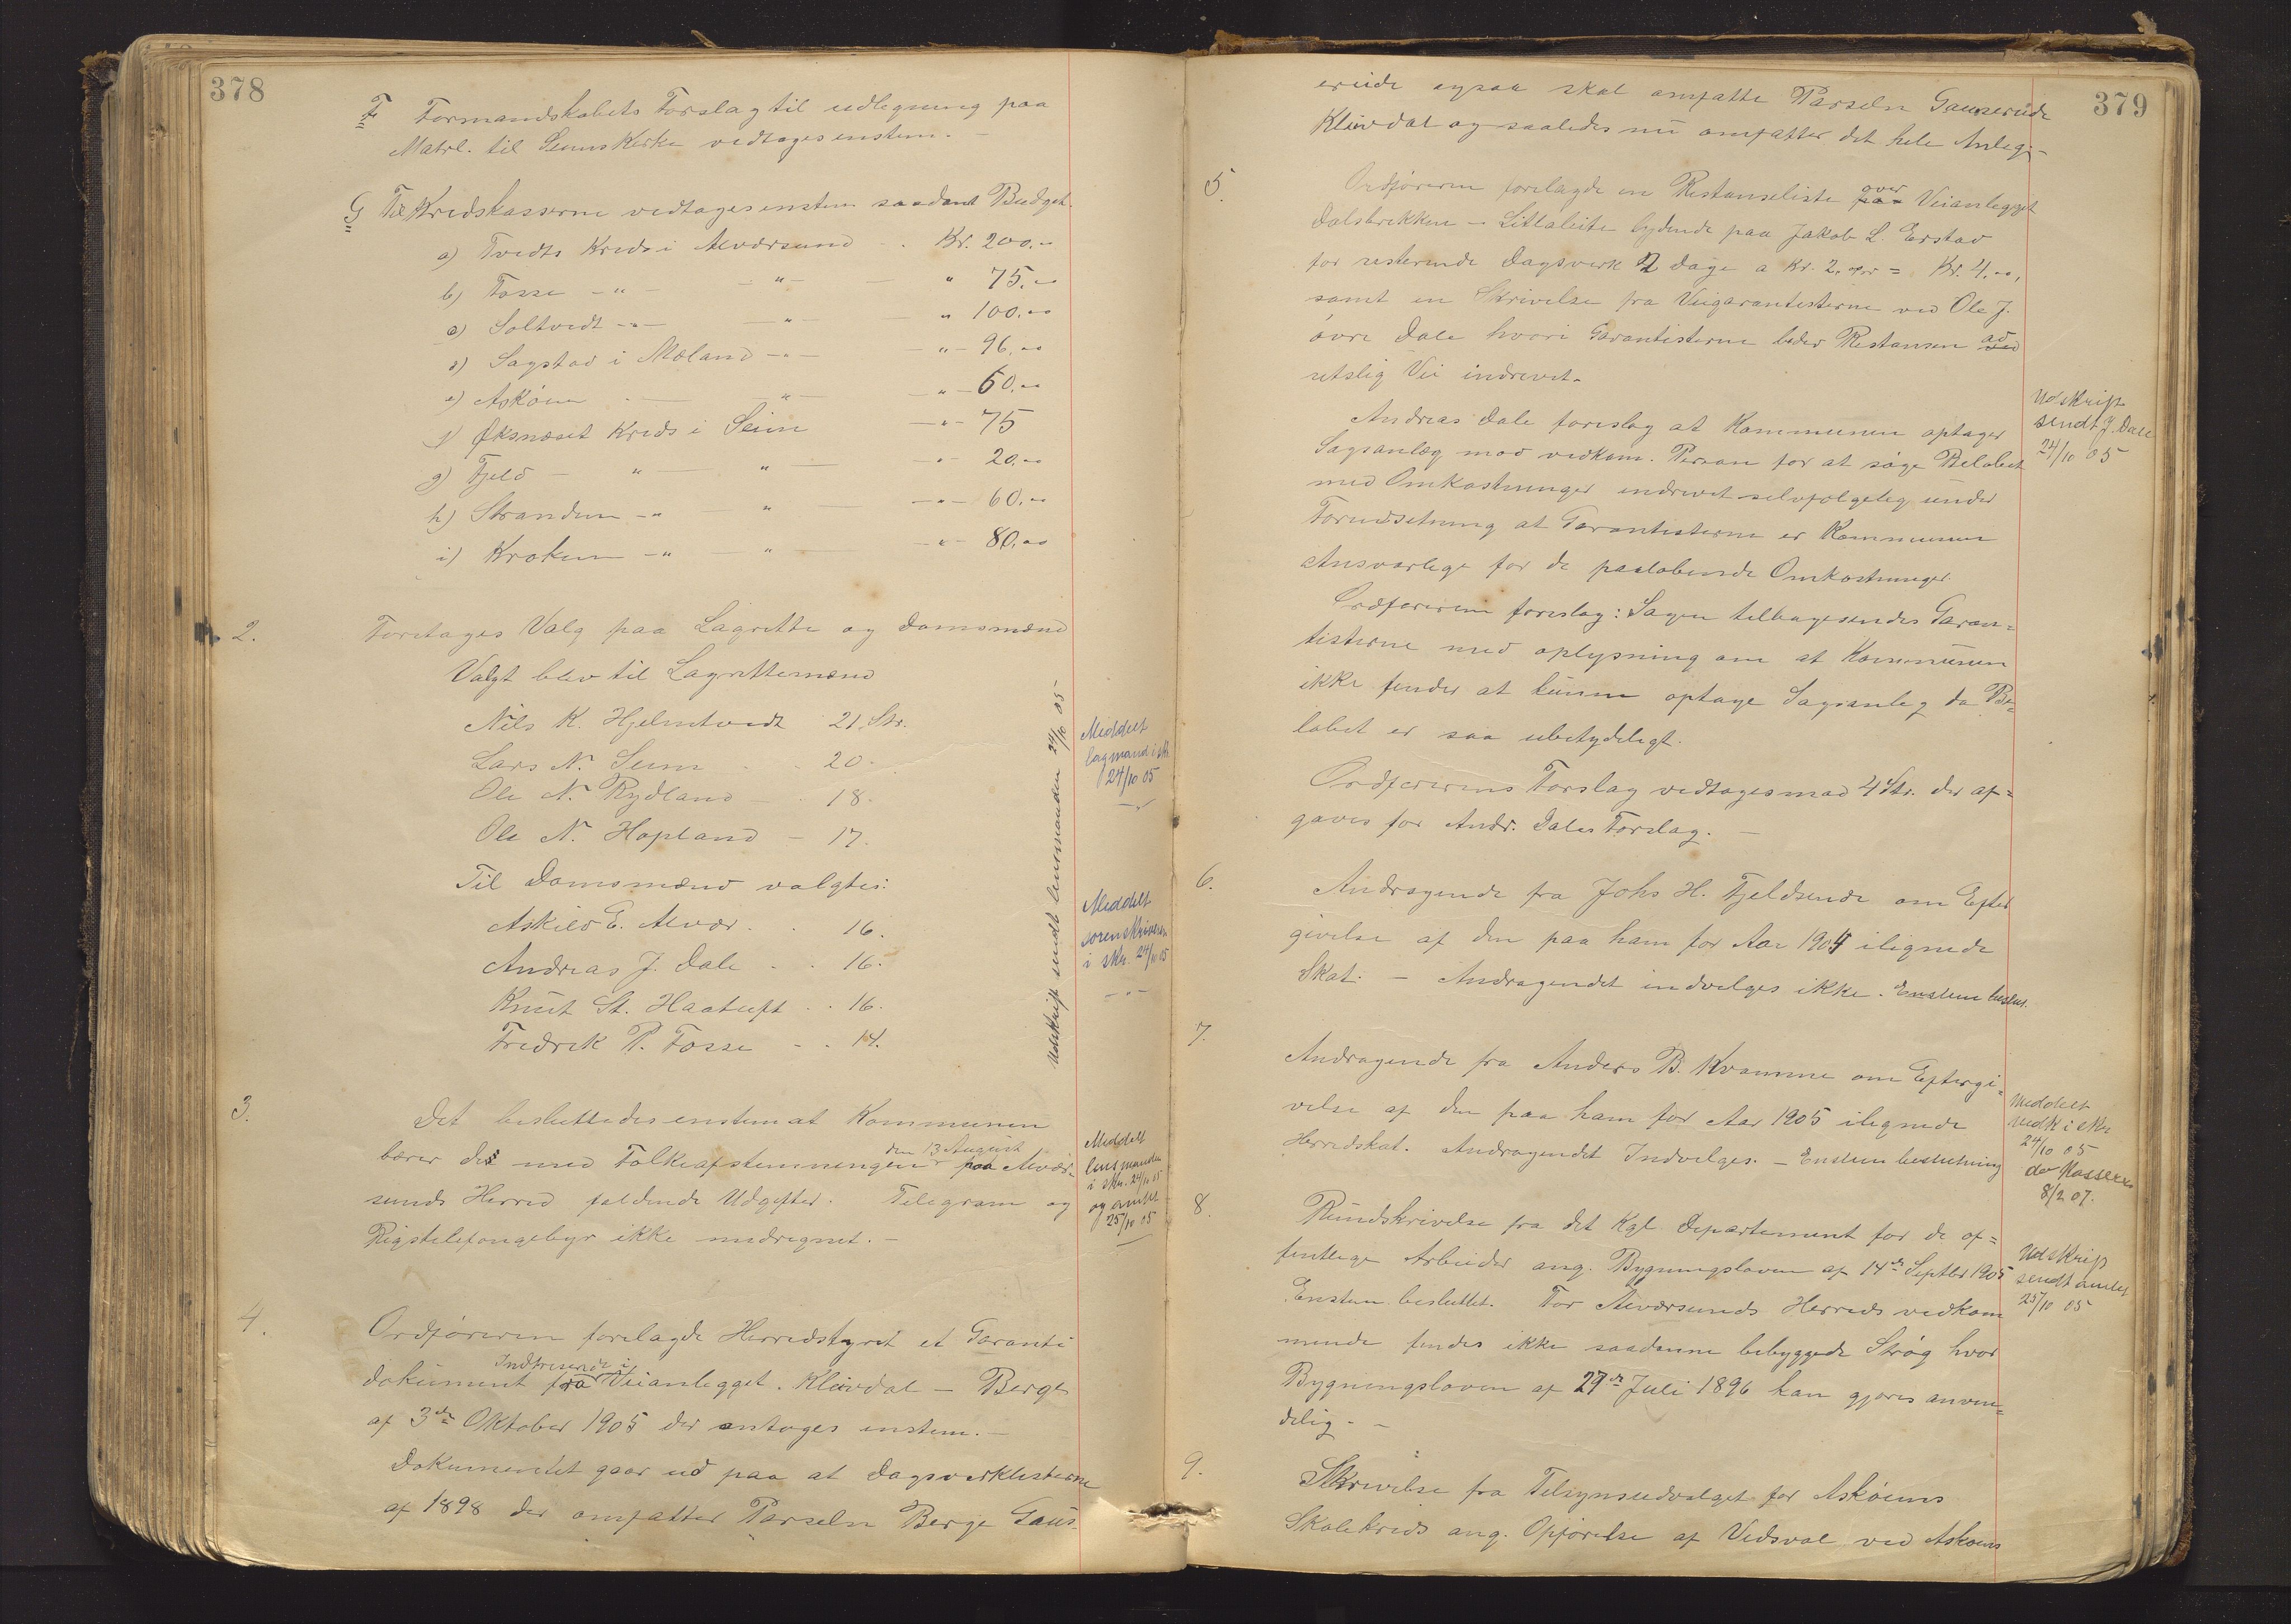 378
F Formandskabets Forslag til udlegning paa
Matrl. til Seims Kirke vedtages enstem. -
G Til Kredskasserne vedtages enstem saadant Budget.
a) Tvedts Kreds i Alversund - . Kr. 200.00
b) Fosse - " - - " - - " 75.00
c) Soltvedt - " - - " - - " 100.00
d) Sagstad i Mæland - " - - " - 96.00
e) Asköen - - " - - " - 60.00
f) Øksnæset Kreds i Seim - " - 75
g) Fjeld - " - " - - " - 20.00
h) Stranden - " - " - - " - 60.00
i) Kroken - " - " - - " - 80.00
2. Foretages Valg paa Lagrette og Domsmænd
Valgt blev til Lagrettemænd
Nils K. Hjelmtvedt 21. Str.
Lars N. Seim . . 20 -
Ole N. Rydland - . 18.
Ole N. Hopland - 17.
Til Domsmænd valgtes:
Askild E. Alvær . . 16.
Andreas J. Dale . . 16.
Knut St. Haatuft . . 16.
Fredrik P. Fosse - . 14.
Udskrift sendt lensmanden 24/10 05
Meddelt
lagmand i skr
24/10 05
Meddelt
sorenskriveren
i skr. 24/10 05
- " -
3. Det besluttedes enstem at Kommunen
bærer de med Folkeafstemningen den 13 August paa Alvær-
sunds Herred faldende Udgifter. Telegram og
Rigstelefongebyr ikke medregnet. -
Meddelt
lensmanden
i skr. 24/10 05
og amtet
25/10 05
4. Ordföreren forelagde Herredstyret et Garanti
dokument fra Indtreserede i Veianlegget. Kleivdal - Berge
af 3de Oktober 1905 der antages enstem. -
Dokumentet gaar ud paa at Dagsverklisterne
af 1898 der omfatter Parseln Berge Gaus-
379
ereide ogsaa skal omfatte Parseln Gausereide
Kleivdal og saaledes nu omfatter det hele Anleg. -
5. Ordföreren forelagde en Restanseliste paa over Veianlegget
Dalsbrekken - Litlaleite lydende paa Jakob L. Erstad
for resterende Dagsverk 2 Dage a Kr. 2, = Kr. 4.00,
samt en Skrivelse fra Veigarantisterne ved Ole J.
övre Dale hvori Garantisterne beder Restansen ved ad
retslig Vei indrevet.
Andreas Dale foreslog at Kommunen optager
Sagsanlæg mod vedkom. Person for at söge Belöbet
med Omkostninger indrevet selvfölgelig under
Forudsetning at Garantisterne er Kommunen
Ansvarlige for de paalöbende Omkostninger.
Udskrift
sendt J. Dale
24/10 05
Ordföreren foreslog: Sagen tilbagesendes Garan=
tisterne med oplysning om at Kommunen
ikke finder at kunne optage Sagsanleg da Be=
löbet er saa ubetydeligt.
Ordförerens Forslag vedtages mod 4 Str. der af=
gaves for Andr. Dales Forslag. -
6. Andragende fra Johs H. Fjeldsende om Efter
givelse af den paa ham for Aar 1904 ilignede
Skat. - Andragendet indvilges ikke. Enstem beslut.
7. Andragende fra Anders B. Kvamme om Eftergi=
velse af den paa ham for Aar 1905 ilignede
Herredskat. Andragendet Indvilges. - Enstem beslutning
Meddelt
vedk i skr
24/10 05
do Kasserer
8/2 07.
8. Rundskrivelse fra det Kgl. Departement for de of=
fentlige Arbeider ang. Bygningsloven af 14de Septbr 1905
Enstem besluttet. For Alversunds Herreds vedkom
mende findes ikke saadanne bebyggede Strög hvor
Bygningsloven af 27de Juli 1896 kan gjöres anven=
delig. -
Udskrift
sendt amtet
25/10 05
9. Skrivelse fra Tilsynsudvalget for Asköens
Skolekreds ang. Opförelse af Vedsval ved Asköens